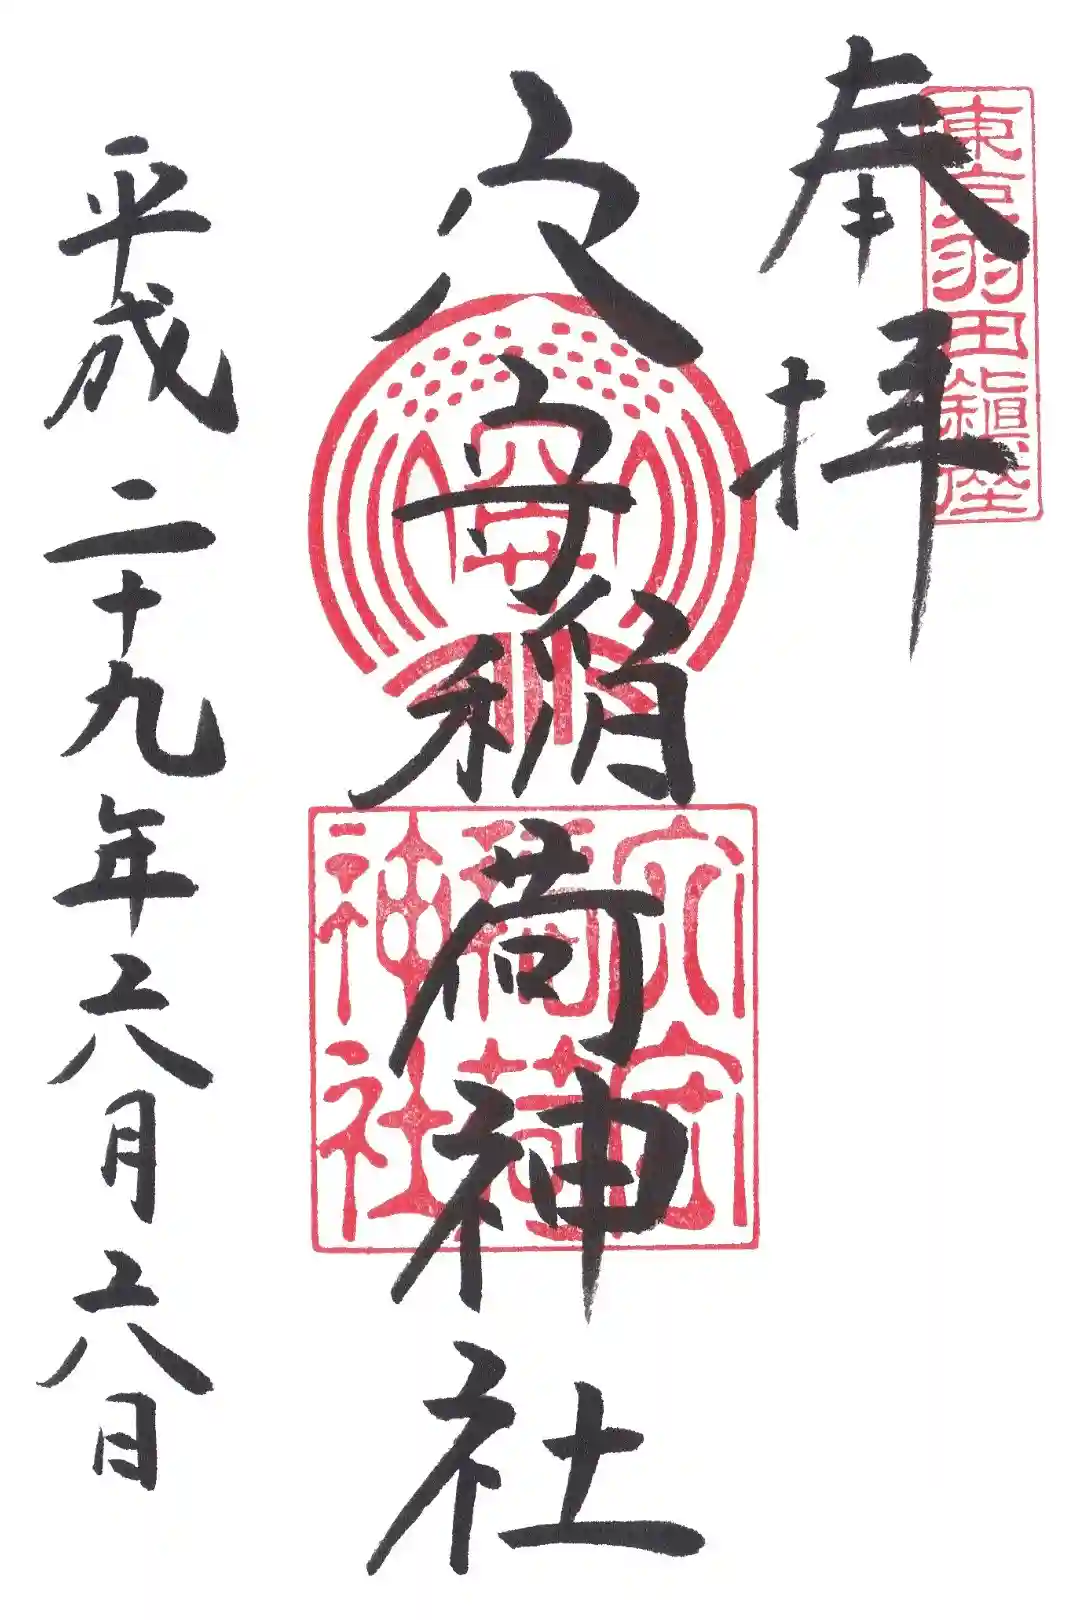 奉拝
東京羽田鎮座
穴守稲荷神社
穴守
稲荷
神社
平成二十九年六月六日